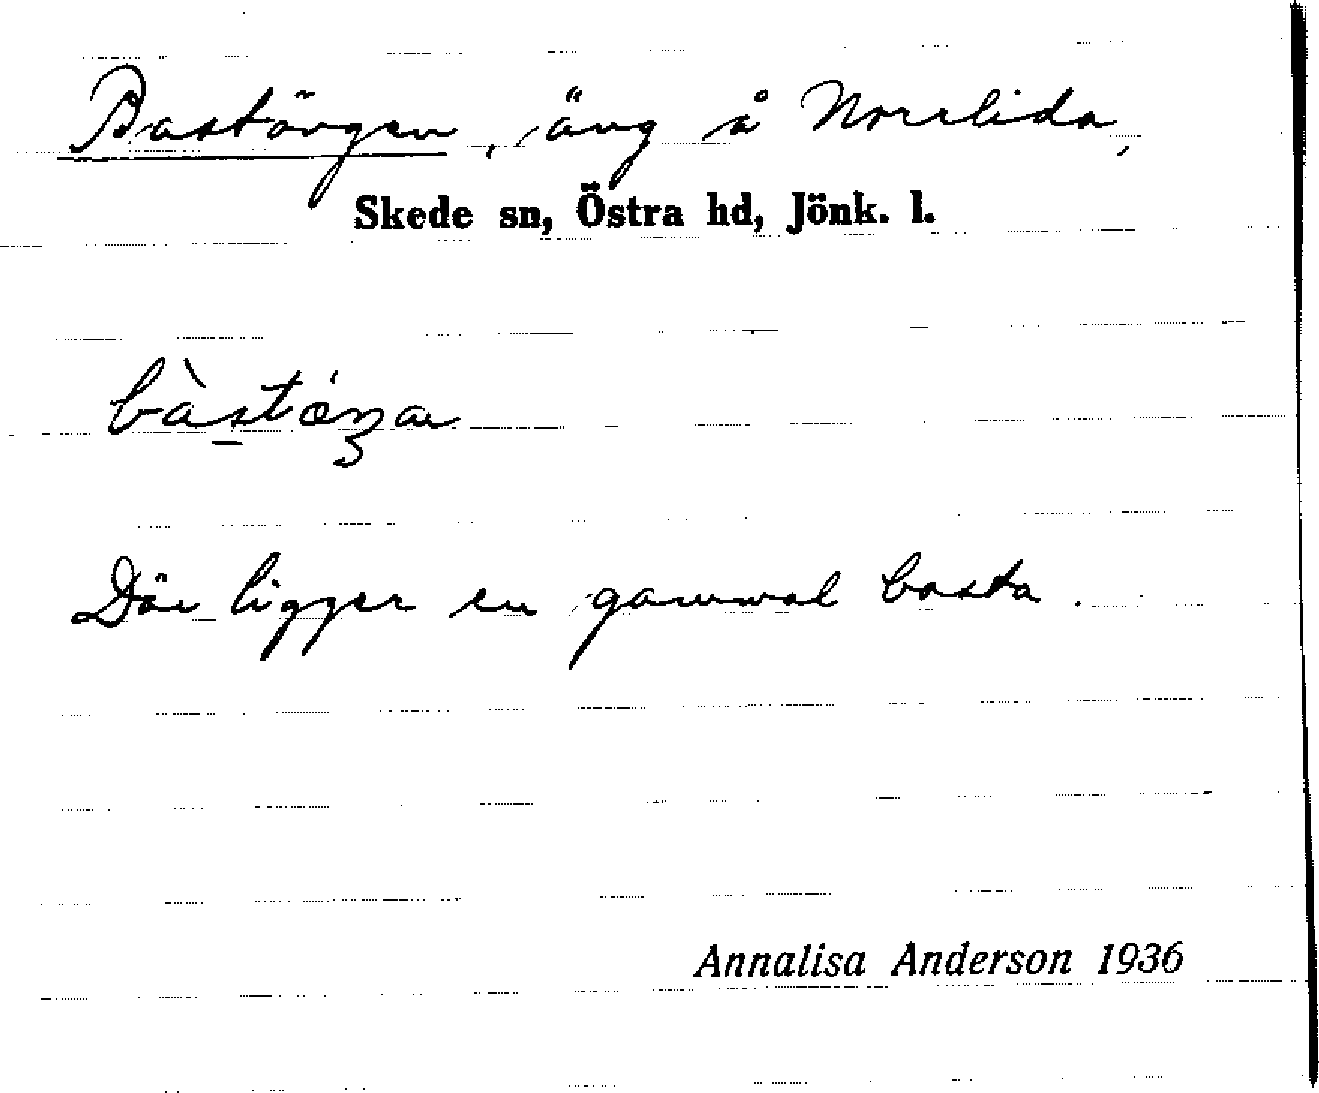 Bastängen, äng å Norrlida,
Skede sn, Östra hd, Jönk. l.
bàstä́ŋa
Där ligger en gammal basta.
Annalisa Anderson 1936